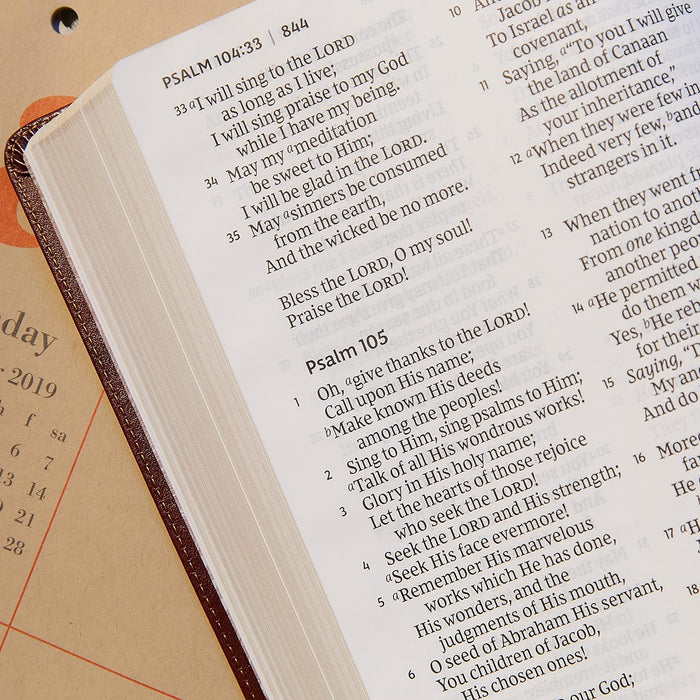 PSALM 104:33 | 844
33 aI will sing to the LORD
as long as I live;
I will sing praise to my God
while I have my being.
34 May my ameditation
be sweet to Him;
I will be glad in the LORD.
35 May asinners be consumed
from the earth,
And the wicked be no more.
Bless the LORD, O my soul!
Praise the LORD!
Psalm 105
1 Oh, agive thanks to the LORD!
Call upon His name;
bMake known His deeds
among the peoples!
2 Sing to Him, sing psalms to Him;
aTalk of all His wondrous works!
3 Glory in His holy name;
Let the hearts of those rejoice
who seek the LORD!
4 Seek the LORD and His strength;
aSeek His face evermore!
5 aRemember His marvelous
works which He has done,
His wonders, and the
judgments of His mouth,
6 O seed of Abraham His servant,
You children of Jacob,
His chosen ones!
our God;
10
Jacob
To Israel as an
covenant,
11 Saying, a"To you I will give
the land of Canaan
As the allotment of
your inheritance,"
12 aWhen they were few in
Indeed very few, band
strangers in it.
13 When they went
nation to
From one
another
14 aHe permitted
do them
Yes, bHe
for their
15 Saying,
My
And do
16
He
17
18
day
2019
f sa
6 7
13 14
20 21
28